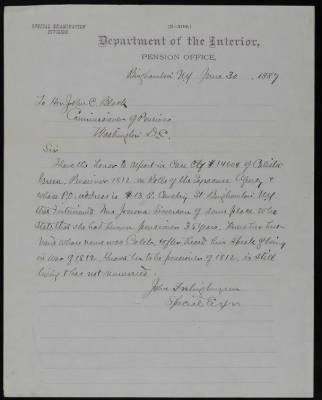 SPECIAL EXAMINATION
DIVISION.
Department of the Interior,
PENSION OFFICE,
Binghamton N.Y. June 30, 1887
To Hon John C. Black
Commissioner of Pensions
Washington D.C.
Sir
I have the honor to report in case Ctf # 14608 of
Green, Pensioner 1812, on Rolls of the Syracuse Agency &
whose P.O. address is # 13 St Binghamton N.Y.
that I interviewed Mrs of same place who
states that she had known pensioner 35 years. Knew her hus-
band whose name was Caleb & often heard him speak of being
in war of 1812. Knows her to be pensioner of 1812, is still
living & has not remarried.
John
Special Exr